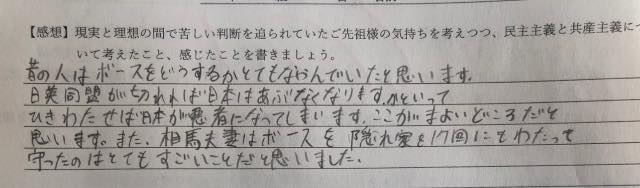 【感想】現実と理想の間で苦しい判断を迫られていたご先祖様の気持ちを考えつつ、民主主義と共産主義につ
いて考えたこと、感じたことを書きましょう。
昔の人はボースをどうするかとてもなやんでいたと思います。
日英同盟が切れれば日本はあぶなくなります。かといって
ひきわたせば日本が悪者になってしまいます。ここがまよいどころだと
思います。また、相馬夫妻はボースを隠れ家を17回にもわたって
守ったのはとてもすごいことだと思いました。